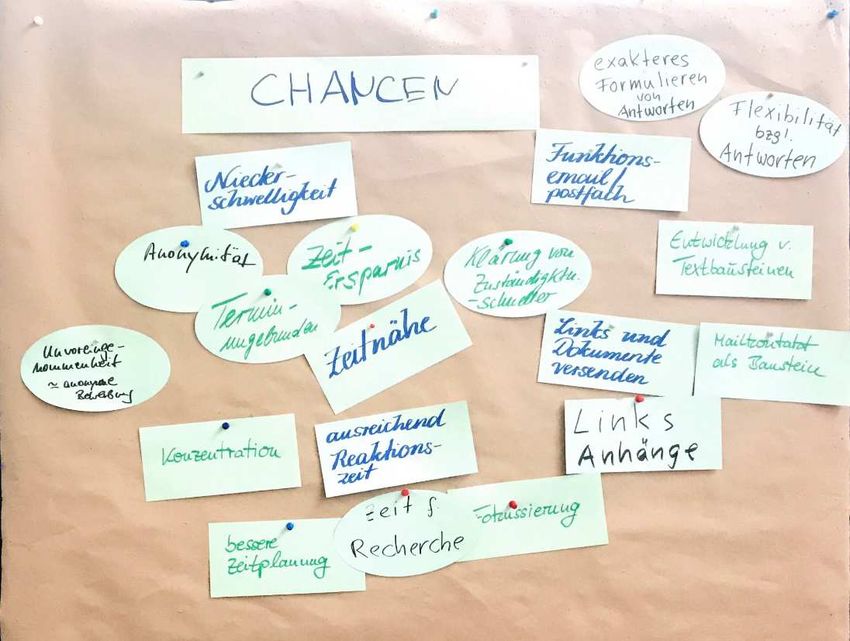 CHANCEN
exakteres
Formulieren
von
Antworten
Flexibilität
bzgl.
Antworten
Nieder-
schwelligkeit
Funktions-
email/
postfach
Anonymität
Zeit-
Ersparnis
Klärung von
Zuständigktn.
schneller
Entwicklung v.
Textbausteinen
Termin-
ungebunden
Zeitnähe
Links und
Dokumente
versenden
Mailkontakt
als Baustein
Unvoreinge-
nommenheit
≈ anonyme
Konzentration
ausreichend
Reaktions-
zeit
Links
Anhänge
bessere
Zeitplanung
Zeit f.
Recherche
Fokussierung